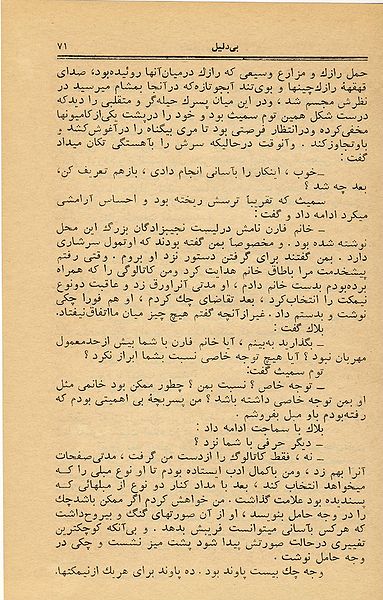 بی‌دلیل
۷۱
حمل رازك و مزارع وسیعی که رازك درمیان‌آنها روئیده‌بود، صدای
قهقههٔ رازك‌چینها و بوی‌تند آبجو‌تازه‌که درآنجا بمشام میرسید در
نظرش مجسم شد ، ودر این میان پسرك حیله‌گر و متقلبی را دیدکه
درست شکل همین توم سمیث بود و خود را درپشت یکی‌از کامیونها
مخفی‌کرده ودرانتظار فرصتی بود تا مری بیگناه را درآغوش‌کشد و
باوتجاوزکند . وآنوقت درحالیکه سرش را بآهستگی تکان میداد
گفت:
ـ خوب ، اینکار را بآسانی انجام دادی ، بازهم تعریف کن،
بعد چه شد ؟
سمیث که تقریبا ترسش ریخته بود و احساس آرامشی
میکرد ادامه داد و گفت:
ـ خانم فارن نامش درلیست نجیبزادگان بزرگ این محل
نوشته شده بود . و مخصوصا بمن گفته بودند که اوتمول سرشاری
دارد . بمن گفتند برای گرفتن دستور نزد او بروم . وقتی رفتم
پیشخدمت مرا باطاق خانم هدایت کرد ومن کاتالوگی را که همراه
برده‌بودم بدست خانم دادم ، او مدتی آنراورق زد و عاقبت دونوع
نیمکت را انتخاب‌کرد ، بعد تقاضای چك کردم ، او هم فورا چکی
نوشت و بدستم داد . غیرازآنچه گفتم هیچ چیز میان مااتفاق‌نیفتاد.
بلاك گفت :
ـ بگذارید به‌بینم ، آیا خانم فارن با شما بیش ازحدمعمول
مهربان نبود ؟ آیا هیچ توجه خاصی نسبت بشما ابراز نکرد ؟
توم سمیث گفت:
ـ توجه خاص ؟ نسبت بمن ؟ چطور ممکن بود خانمی مثل
او بمن توجه خاصی داشته باشد ؟ من پسربچهٔ بی اهمیتی بودم که
رفته‌بودم باو مبل بفروشم .
بلاك با سماجت ادامه داد :
ـ دیگر حرفی با شما نزد ؟
ـ نه ، فقط کاتالوگ را ازدست من گرفت ، مدتی‌صفحات
آنرا بهم زد ، ومن باکمال ادب ایستاده بودم تا او نوع مبلی را که
میخواهد انتخاب کند ، بعد با مداد کنار دو نوع از مبلهائی که
پسندیده بود علامت گذاشت . من خواهش کردم اگر ممکن باشدچك
را در وجه حامل بنویسد ، او از آن صورتهای گنگ و بیروح‌داشت
که هرکس بآسانی میتوانست فریبش بدهد . و بی‌آنکه کوچکترین
تغییری درحالت صورتش پیدا شود پشت میز نشست و چکی در
وجه حامل نوشت .
وجه چك بیست پاوند بود . ده پاوند برای هریك ازنیمکتها.